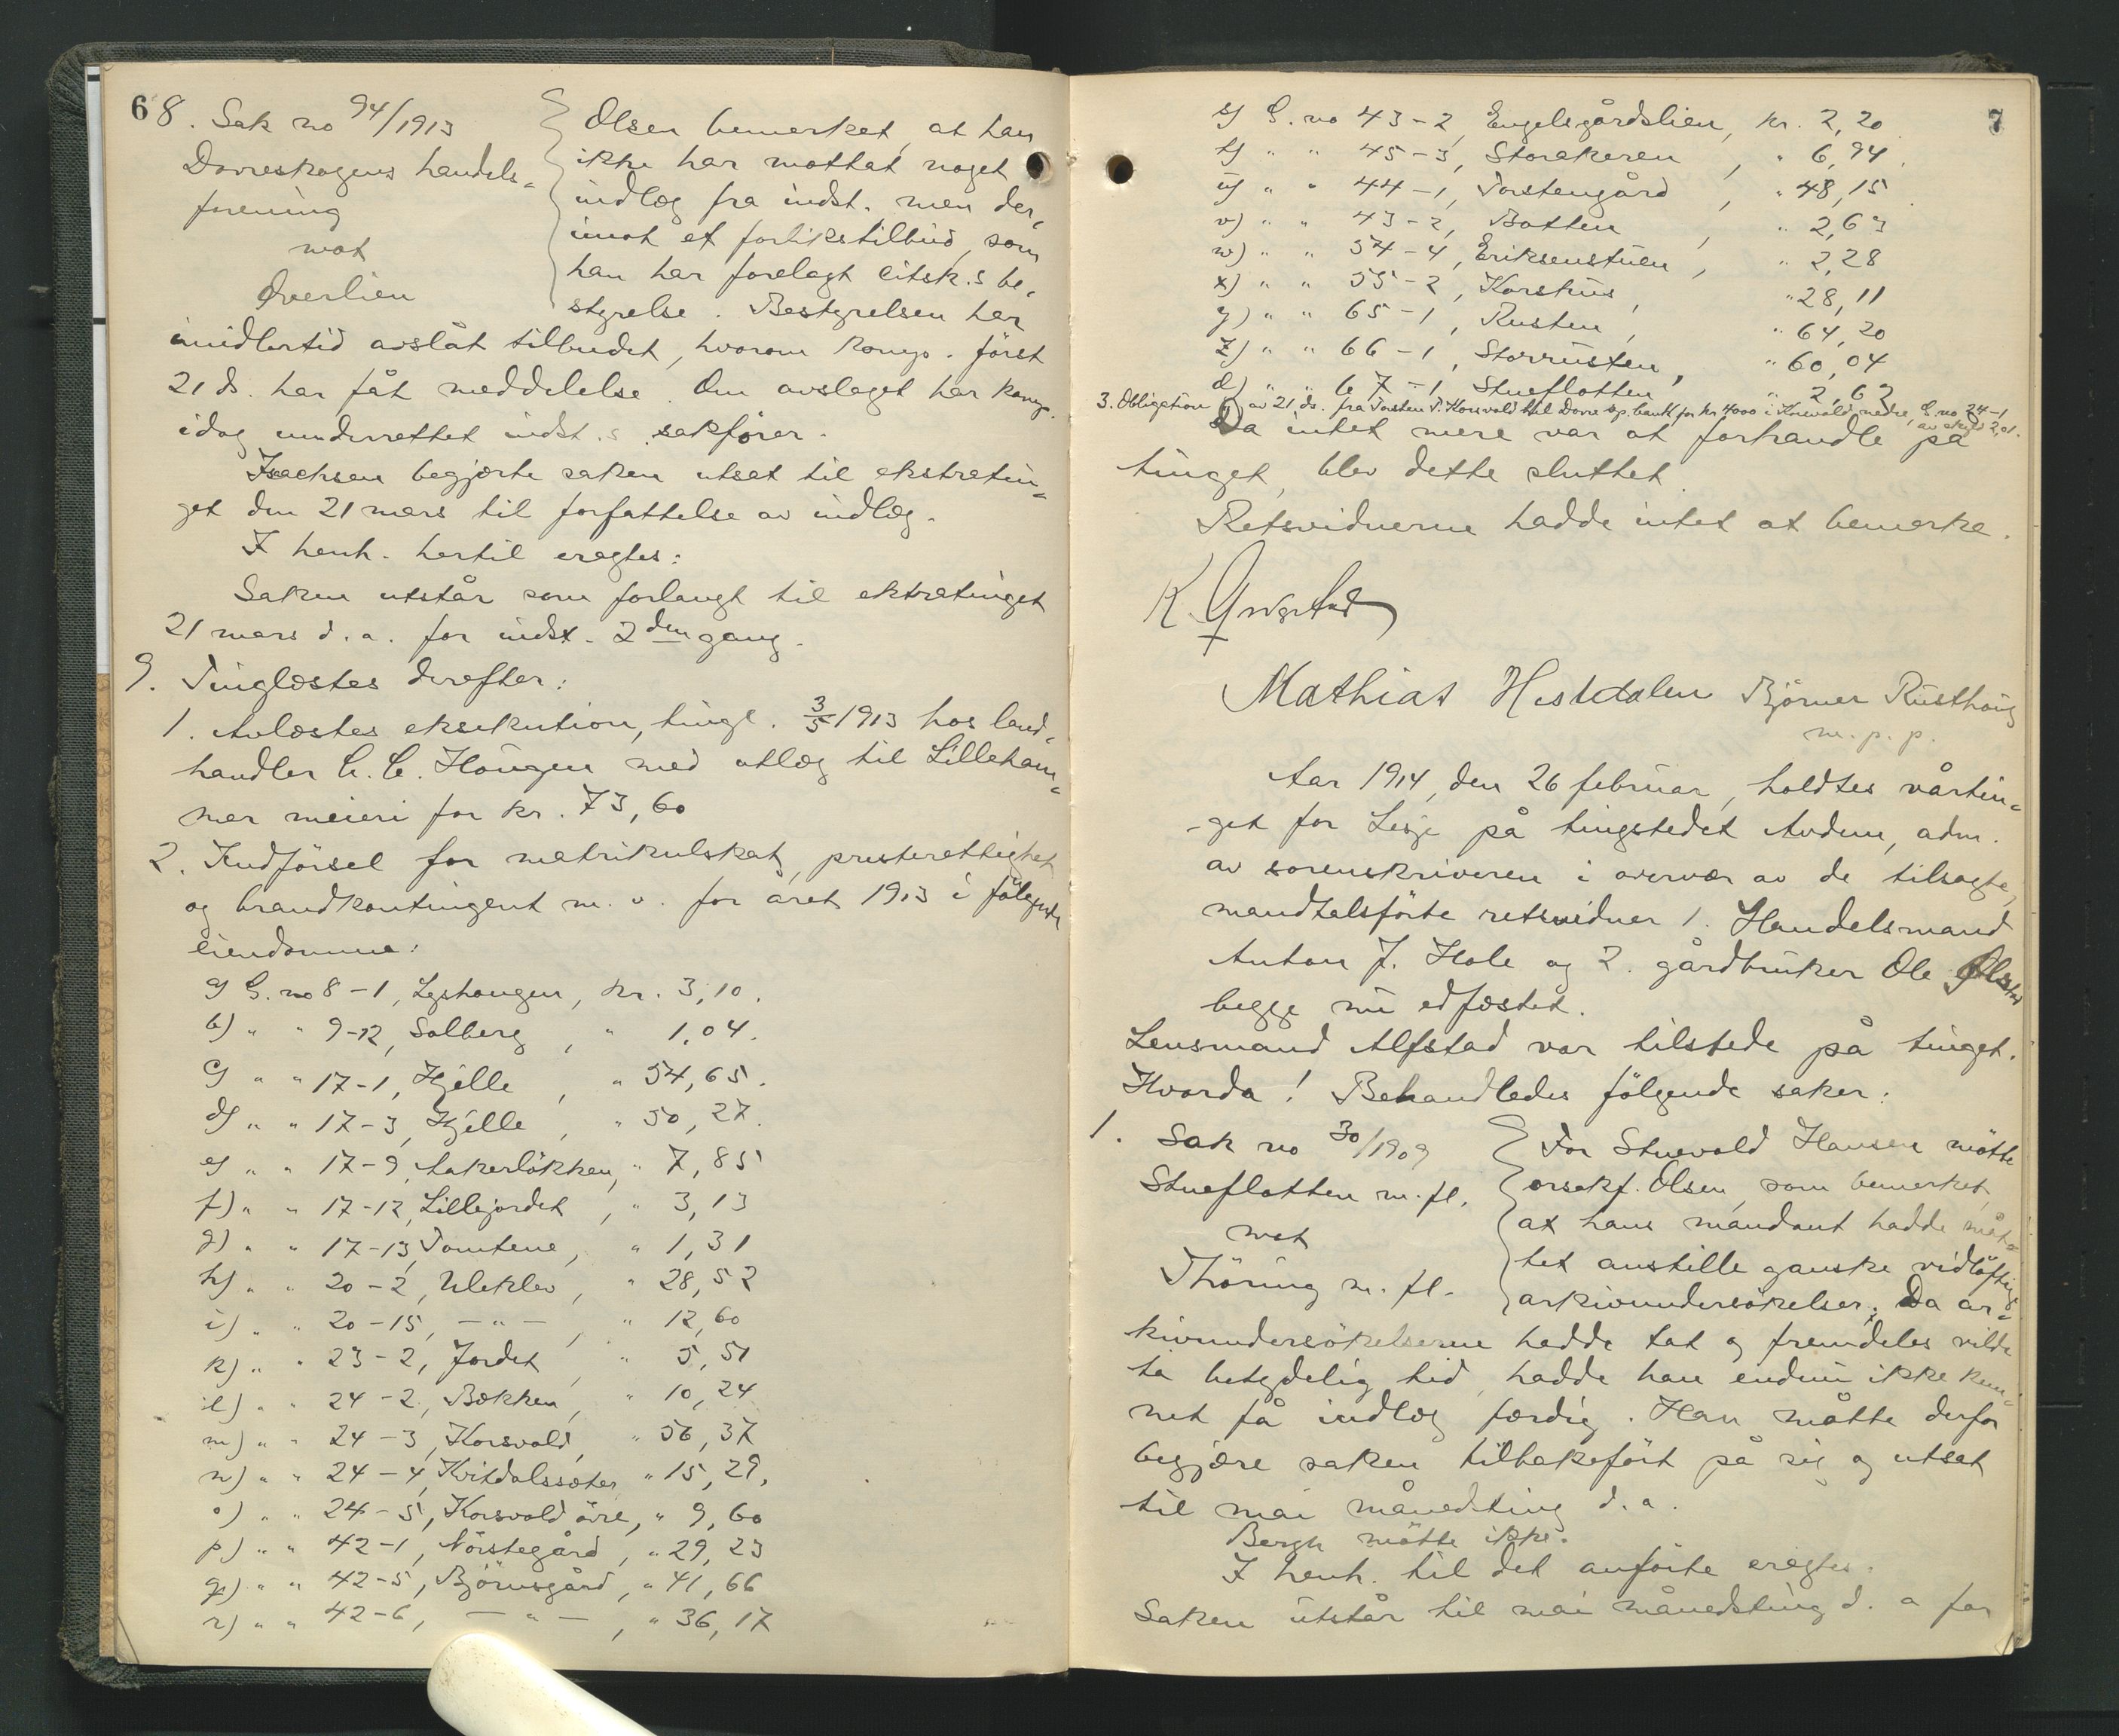 6
8. Sak no 94/1913
Dovreskogens handels-
forening
mot
Øverlien
Olsen bemerket, at han
ikke har mottat noget
indlæg fra indst. men der-
imot et forlikstilbud, som
han har forelagt citsk.s be-
styrelse. Bestyrelsen har
imidlertid avslåt tilbudet, hvorom komp. først
21 ds. har fåt meddelelse. Om avslaget har komp.
idag underrettet indst.s sakfører.
Isachsen begjærte saken utsat til ekstratin-
get den 21 mars til forfattelse av indlæg.
I henh. hertil eragtes:
Saken utstår som forlangt til ekstratinget
21 mars d. a. for indst. 2den gang.
9. Tinglæstes derefter:
1. Avlæstes eksekution, tingl. 3/5 1913 hos land-
handler C. C. Haugen med utlæg til Lilleham-
mer meieri for kr. 73,60
2. Indførsel for matrikulskat, presterettighet
og brandkontingent m. v. for året 1913 i følgende
eiendomme:
a) G. no 8-1, Lyshaugen, kr. 3,10.
b) " " 9-12, Solberg, " 1,04.
c) " " 17-1, Hjelle, " 54,65.
d) " " 17-3, Hjelle, " 50,27.
e) " " 17-9, Aakerløkken, " 7,85
f) " " 17-12, Lillejordet, " 3,13
g) " " 17-13, Tomtene, " 1,31
h) " " 20-2, Uleklev, " 28,52
i) " " 20-15, — " —, " 12,60
k) " " 23-2, Jordet, " 5,51
l) " " 24-2, Bækken, " 10,24
m) " " 24-3, Korsvold, " 56,37
n) " " 24-4, Kvitdalssæter " 15,29.
o) " " 24-5, Korsvold øvre, " 9,60
p) " " 42-1, Nørstegård, " 29,23
q) " " 42-5, Bjørnsgård, " 41,66
r) " " 42-6, — " —, " 36,17
7
s) G. no 43-2, Engelsgårdslien, kr. 2,20
t) " " 45-3, Storakeren, " 6,94.
u) " " 44-1, Torstengård, " 48,15
v) " " 43-2, Botten, " 2,63
w) " " 54-4, Eriksenstuen, " 2,28
x) " " 55-2, Korshus, " 28,11
y) " " 65-1, Rusten, " 64,20
z) " " 66-1, Storrusten, " 60,04
" " 67-1, Stueflotten " 2,62
3. Obligation av 21 ds. fra Torsten T. Korsvold til Dovre sp. bank for kr 4000 i Korsvold nedre, G. no 24-1
av skyld 2,01.
Da intet mere var at forhandle på
tinget, blev dette sluttet.
Retsvidnerne hadde intet at bemerke.
K.
Mathias Hestdalen Bjørner Rusthaug
m. p. p.
Aar 1914, den 26 februar, holdtes vårtin-
-get for Lesje på tingstedet Avdem, adm.
av sorenskriveren i overvær av de tilsagte,
mandtalsførte retsvidner 1. Handelsmand
Anton J. Hole og 2. gårdbruker Ole
begge nu edfæstet.
Lensmand Alfstad var tilstede på tinget.
Hvorda! Behandledes følgende saker:
1. Sak no 30/1909
Stueflotten m. fl.
mot
Thøring m. fl.
For Stuevold Hansen møtte
orsakf. Olsen, som bemerket,
at hans mandant hadde måt-
tet anstille ganske vidløftige
arkivundersøkelser. Da ar-
kivundersøkelserne hadde tat og fremdeles vilde
ta betydelig tid, hadde han endnu ikke kun-
net få indlæg færdig. Han måtte derfor
begjære saken tilbakeført på sig og utsat
til mai månedsting d. a.
Bergh møtte ikke.
I henh. til det anførte eragtes:
Saken utstår til mai månedsting d. a for